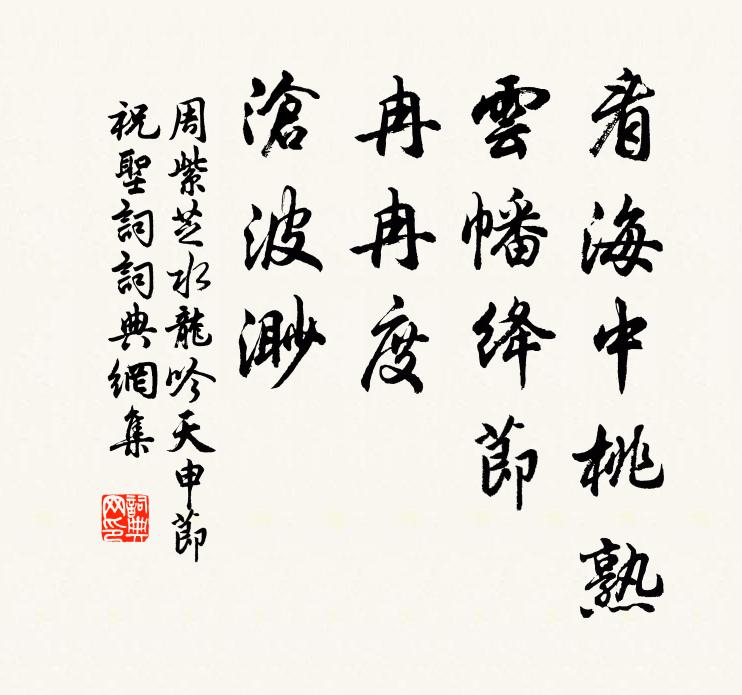 看海中桃熟
雲幡絳節
冉冉度
滄波渺
周紫芝水龍吟天申節
祝聖詞詞典網集
詞典
网印